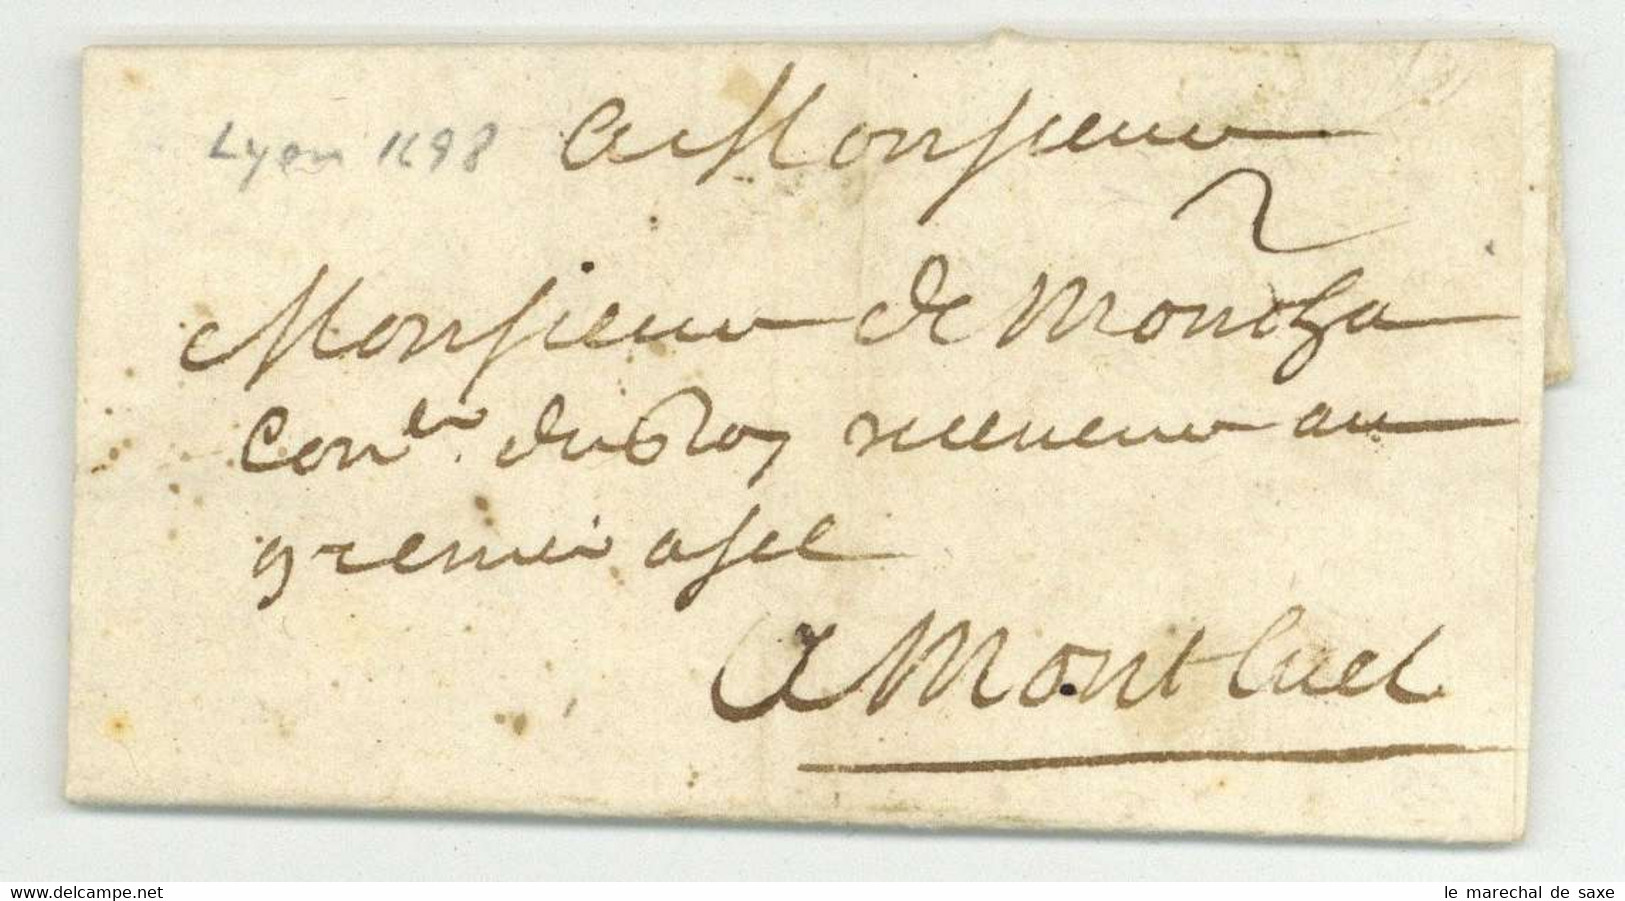 Lyon 1698
A Monsieur
2
Monsieur de Monchza
Con.er du Roy receveur au
grenier a sel
A Montluel
www.delcampe.net
le marechal de saxe